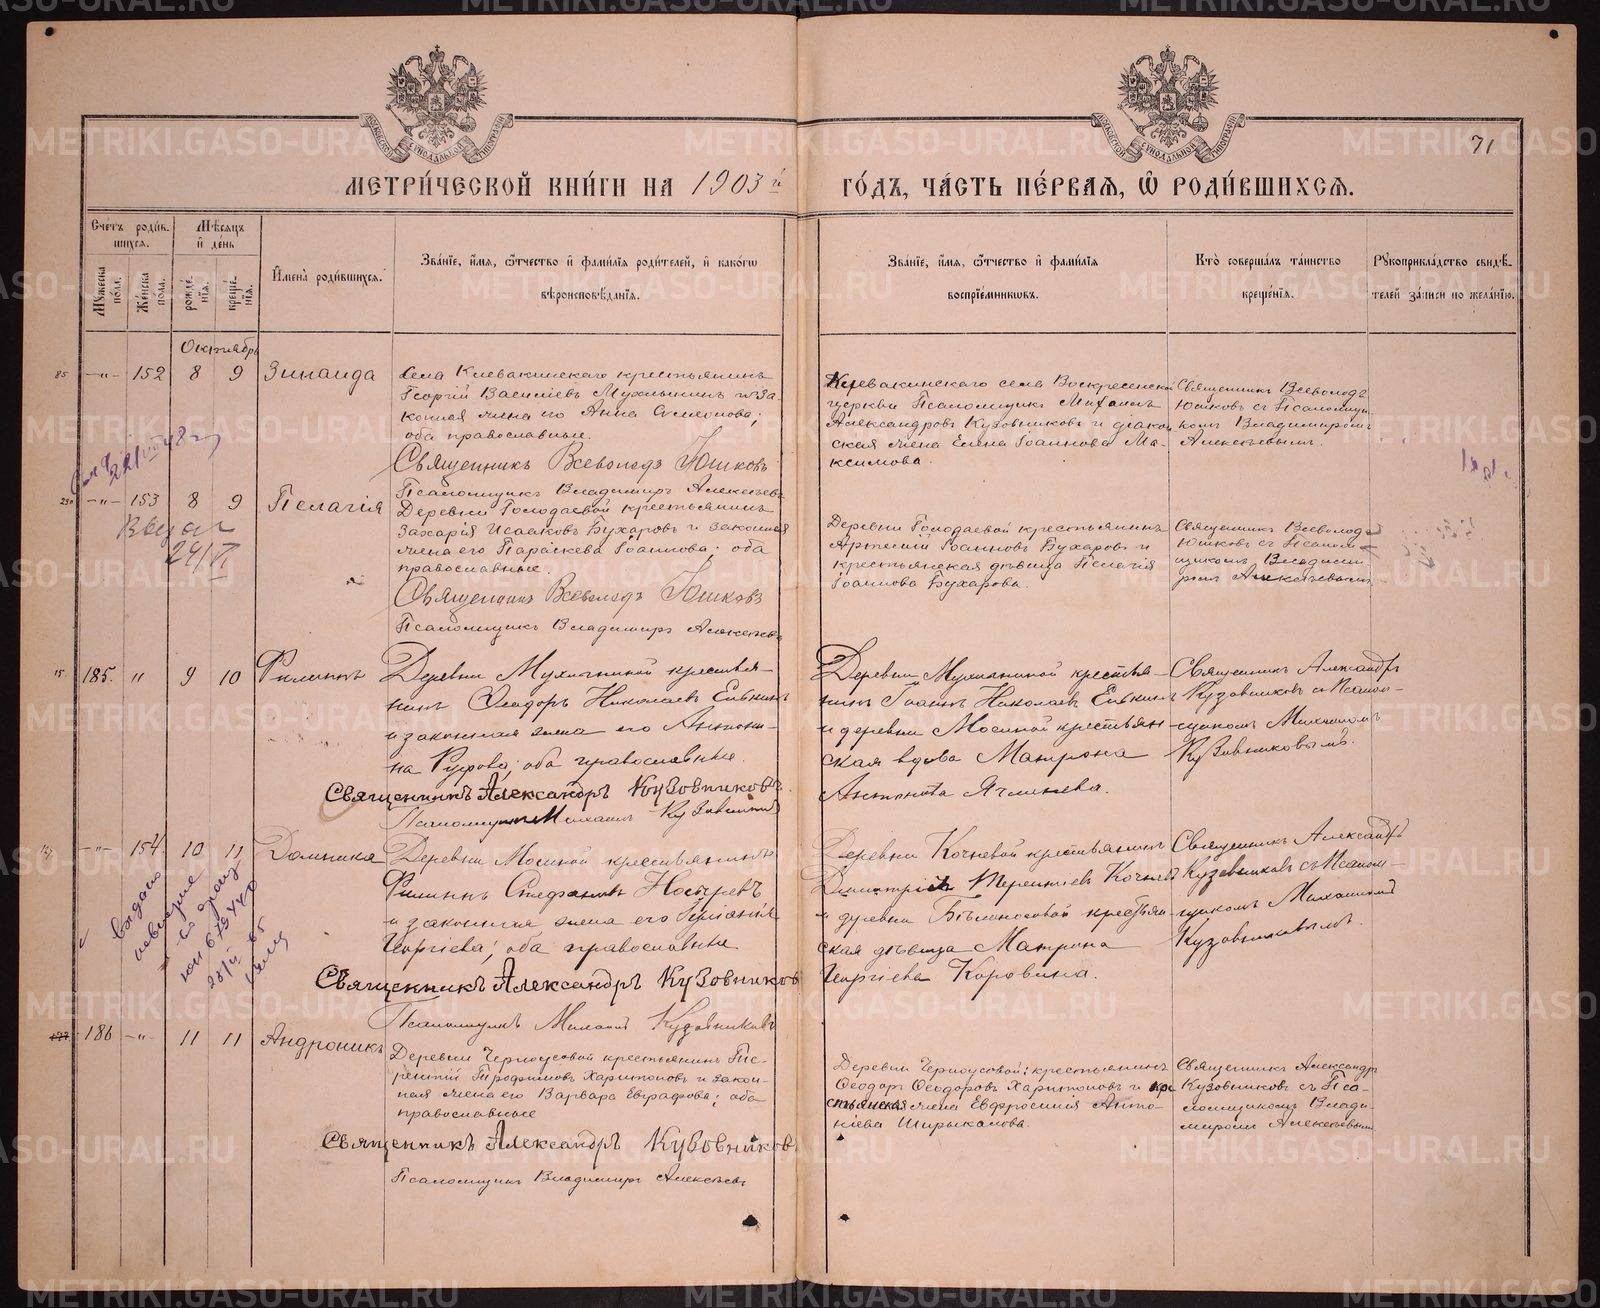 71
МЕТРИ́ЧЕСКОЙ КНИ́ГИ НА 1903й ГО́ДЪ, ЧА́СТЬ ПЕ́РВАЯ, Ѡ РОДИ́ВШИХСЯ.
Счетъ роди́в-
шихся.
Мѣсяцъ
и де́нь
Мꙋ́жеска по́ла.
Же́нска по́ла.
рожде́-
нїѧ.
креще́-
нїѧ.
И҆мена̀ роди́вшихся.
Зва́нїе, и҆́мѧ, ѻ҆́тчество и҆ фами́лїѧ роди́телей, и҆ како́гѡ
вѣроисповѣ́данїѧ.
Зва́нїе, и҆́мѧ, ѻ҆́тчество и҆ фами́лїѧ
воспрїе́мникѡвъ.
Кто̀ соверша́лъ та́инство
креще́нїѧ.
Рꙋкоприкла́дство свидѣ́-
телей за́писи по жела́нїю.
Октябрь
85 -"- 152 8 9 Зинаида
Села Клевакинскаго крестьянинъ
Георгій Васильевъ Мухлынинъ и за
конная жена его Анна Симеонова;
оба православные.
Священникъ Всеволодъ Юшковъ
Псаломщикъ Владимиръ Алексѣевъ
Клевакинскаго села Воскресенской
церкви Псаломщикъ Михаилъ
Александровъ Кузовниковъ и діакон
ская жена Елена Іоаннова Ма-
ксимова.
Священникъ Всеволодъ
Юшковъ съ Псаломщи
комъ Владимиромъ
Алексѣевымъ.
-"- 153 8 9 Пелагія
Деревни Голодаевой крестьянинъ
Захарія Исааковъ Бухаровъ и законная
жена его Параскева Іоаннова; оба
православные.
Священникъ Всеволодъ Юшковъ
Псаломщикъ Владимиръ Алексѣевъ
Деревни Голодаевой крестьянинъ
Артемій Іоанновъ Бухаровъ и
крестьянская дѣвица Пелагія
Іоаннова Бухарова.
Священникъ Всеволодъ
Юшковъ съ Псалом
щикомъ Владими
ромъ Алексѣевымъ
24/VI
15 185. " 9 10 Филиппъ
Деревни Мухлыниной крестья-
нинъ Ѳеодоръ Николаевъ Елькинъ
и законная жена его Антони-
на Руфова; оба православные.
Священникъ Александръ Кузовниковъ.
Псаломщикъ Михаилъ Кузовниковъ
Деревни Мухлыниной крестья-
нинъ Іоаннъ Николаевъ Елькинъ
и деревни Мосиной крестьян-
ская вдова Матрона
Антонова Ячменева.
Священникъ Александръ
Кузовниковъ съ Псалом-
щикомъ Михаиломъ
Кузовниковымъ.
-"- 154 10 11 Домника
Деревни Мосиной крестьянинъ
Филиппъ Стефановъ Ностыревъ
и законная жена его
Георгіева; оба православные
Священникъ Александръ Кузовниковъ
Псаломщикъ Михаилъ Кузовниковъ
Деревни Кочневой крестьянинъ
Димитрій Терентіевъ Кочневъ
и деревни Бѣлоносовой крестьян
ская дѣвица Матрона
Георгіева Коровина.
Священникъ Александръ
Кузовниковъ съ Псалом-
щикомъ Михаиломъ
Кузовниковымъ.
выдано
186 -"- 11 11 Андроникъ
Деревни Черноусовой крестьянинъ Те-
рентій Трофимовъ Харитоновъ и закон-
ная жена его Варвара Евграфова; оба
православные
Священникъ Александръ Кузовниковъ
Псаломщикъ Владимиръ Алексѣевъ
Деревни Черноусовой: крестьянинъ
Ѳеодоръ Ѳеодоровъ Харитоновъ и кре
стьянская жена Евфросинія Анто-
ніева Ширыкалова.
Священникъ Александръ
Кузовниковъ съ Пса-
ломщикомъ Влади-
миромъ Алексѣевымъ
METRIKI.GASO-URAL.RU